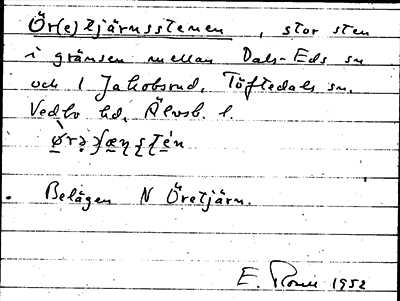 Ör(e)tjärnsstenen, stor sten
i gränsen mellan Dals-Eds sn
och 1 Jakobsrud, Töftedals sn.
Vedbo hd, Älvsb. l.
Belägen N Öretjärn.
E. 1952